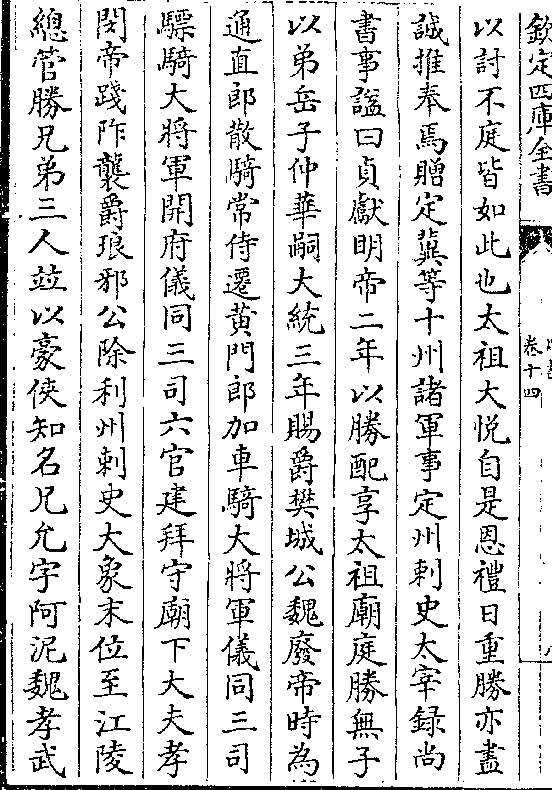 欽定四庫全書
卷十四
以討不庭皆如此也太祖大悅自是恩禮日重勝亦盡
誠推奉焉贈定冀等十州諸軍事定州刺史太宰録尚
書事諡曰貞獻明帝二年以勝配享太祖廟庭勝無子
以弟岳子仲華嗣大統三年賜爵樊城公魏廢帝時為
通直郎散騎常侍遷黄門郎加車騎大將軍儀同三司
驃騎大將軍開府儀同三司六官建拜守廟下大夫孝
閔帝踐阼襲爵琅邪公除利州刺史大象末位至江陵
總管勝兄弟三人竝以豪俠知名兄允字阿泥魏孝武